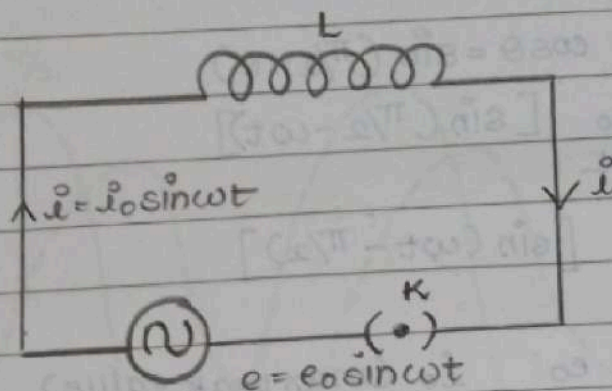 L
i = i₀ sinωt
i
K
e = e₀ sinωt